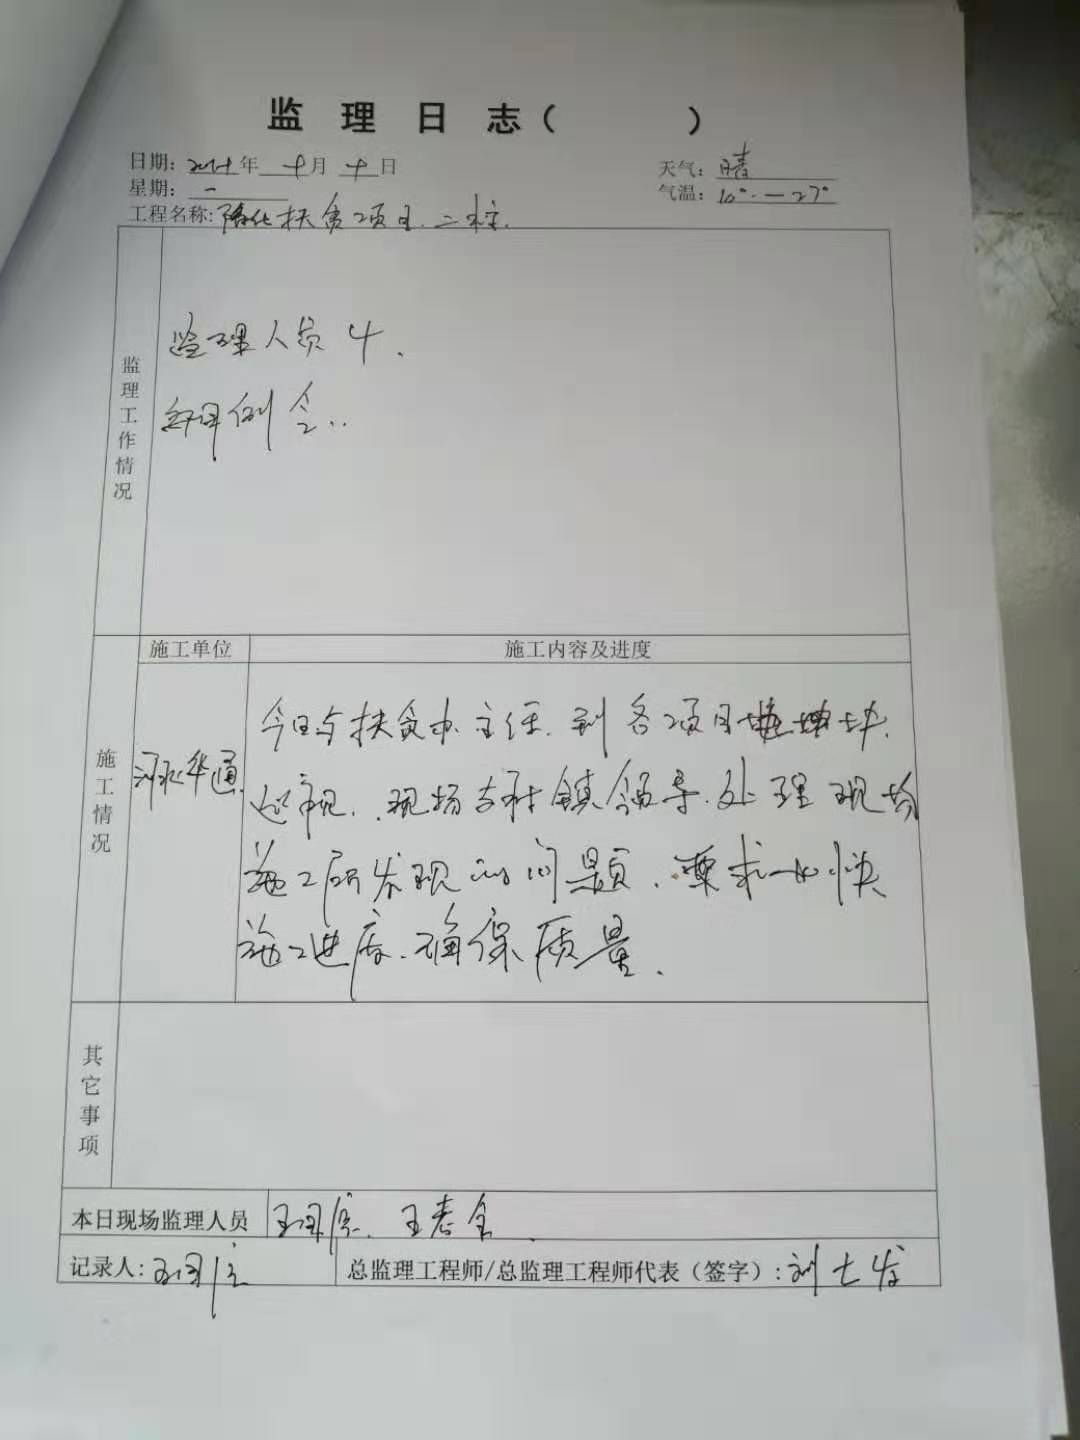 监 理 日 志（　　　）
日期: 年 十月 十日
天气: 晴
星期: 一
气温: 10°—27°
工程名称: 隆化扶贫项目.二标.
监理工作情况
监理人员 4.
例会..
施工单位
施工内容及进度
施工情况
华通
今日与扶贫办主任.到各项目
巡视.现场与村镇领导.处理现场
施工所发现的问题.要求加快
施工进度.确保质量.
其它事项
本日现场监理人员 王 . 王春全.
记录人: 王
总监理工程师/总监理工程师代表（签字）: 刘士发